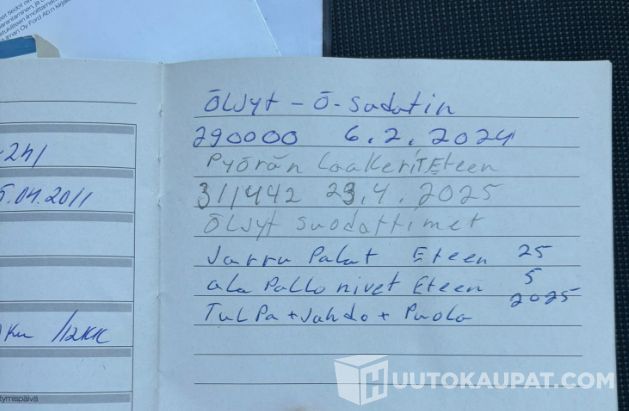 ÖLJyt - Ö-Suodatin
290000 6.2.2024
Pyörän LaakeriT Eteen
311442 29.4.2025
ÖLJyt suodattimet
Jarru Palat Eteen 25
ala Pallo nivet Eteen 5
2025
TulPa + Johdo + Puola
-241
5.04.2011
/12KK
HUUTOKAUPAT.COM